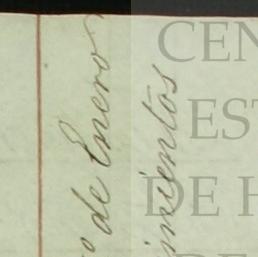 de Enero
imientos
CEN
EST
DE H
DE